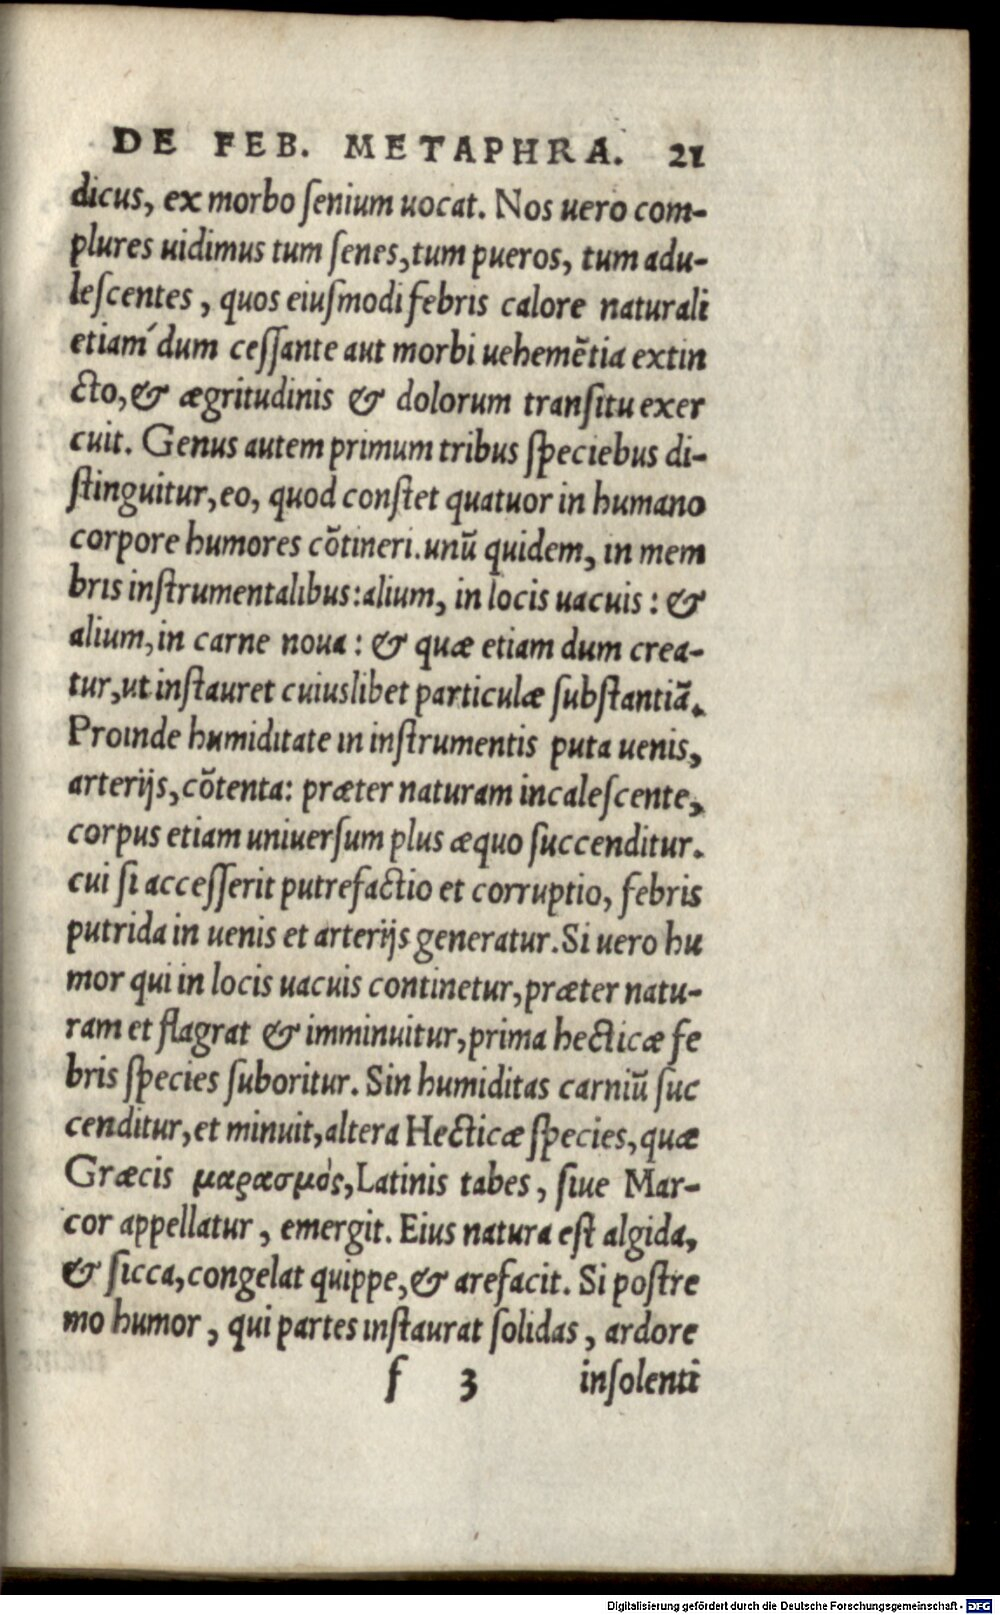 DE FEB. METAPHRA. 21
dicus, ex morbo ſenium uocat. Nos uero com-
plures uidimus tum ſenes, tum pueros, tum adu-
leſcentes, quos eiuſmodi febris calore naturali
etiam´dum ceſſante aut morbi uehemẽtia extin
cto, & ægritudinis & dolorum tranſitu exer
cuit. Genus autem primum tribus ſpeciebus di-
ſtinguitur, eo, quod conſtet quatuor in humano
corpore humores cõtineri. unũ quidem, in mem
bris inſtrumentalibus: alium, in locis uacuis: &
alium, in carne noua: & quæ etiam dum crea-
tur, ut inſtauret cuiuslibet particulæ ſubſtantiã.
Proinde humiditate in inſtrumentis puta uenis,
arterijs, cõtenta: præter naturam incaleſcente,
corpus etiam uniuerſum plus æquo ſuccenditur.
cui ſi acceſſerit putrefactio et corruptio, febris
putrida in uenis et arterijs generatur. Si uero hu
mor qui in locis uacuis continetur, præter natu-
ram et flagrat & imminuitur, prima hecticæ fe
bris ſpecies ſuboritur. Sin humiditas carniũ ſuc
cenditur, et minuit, altera Hecticæ ſpecies, quæ
Græcis μαρασμός, Latinis tabes, ſiue Mar-
cor appellatur, emergit. Eius natura eſt algida,
& ſicca, congelat quippe, & arefacit. Si poſtre
mo humor, qui partes inſtaurat ſolidas, ardore
f 3 inſolenti
Digitalisierung gefördert durch die Deutsche Forschungsgemeinschaft - DFG